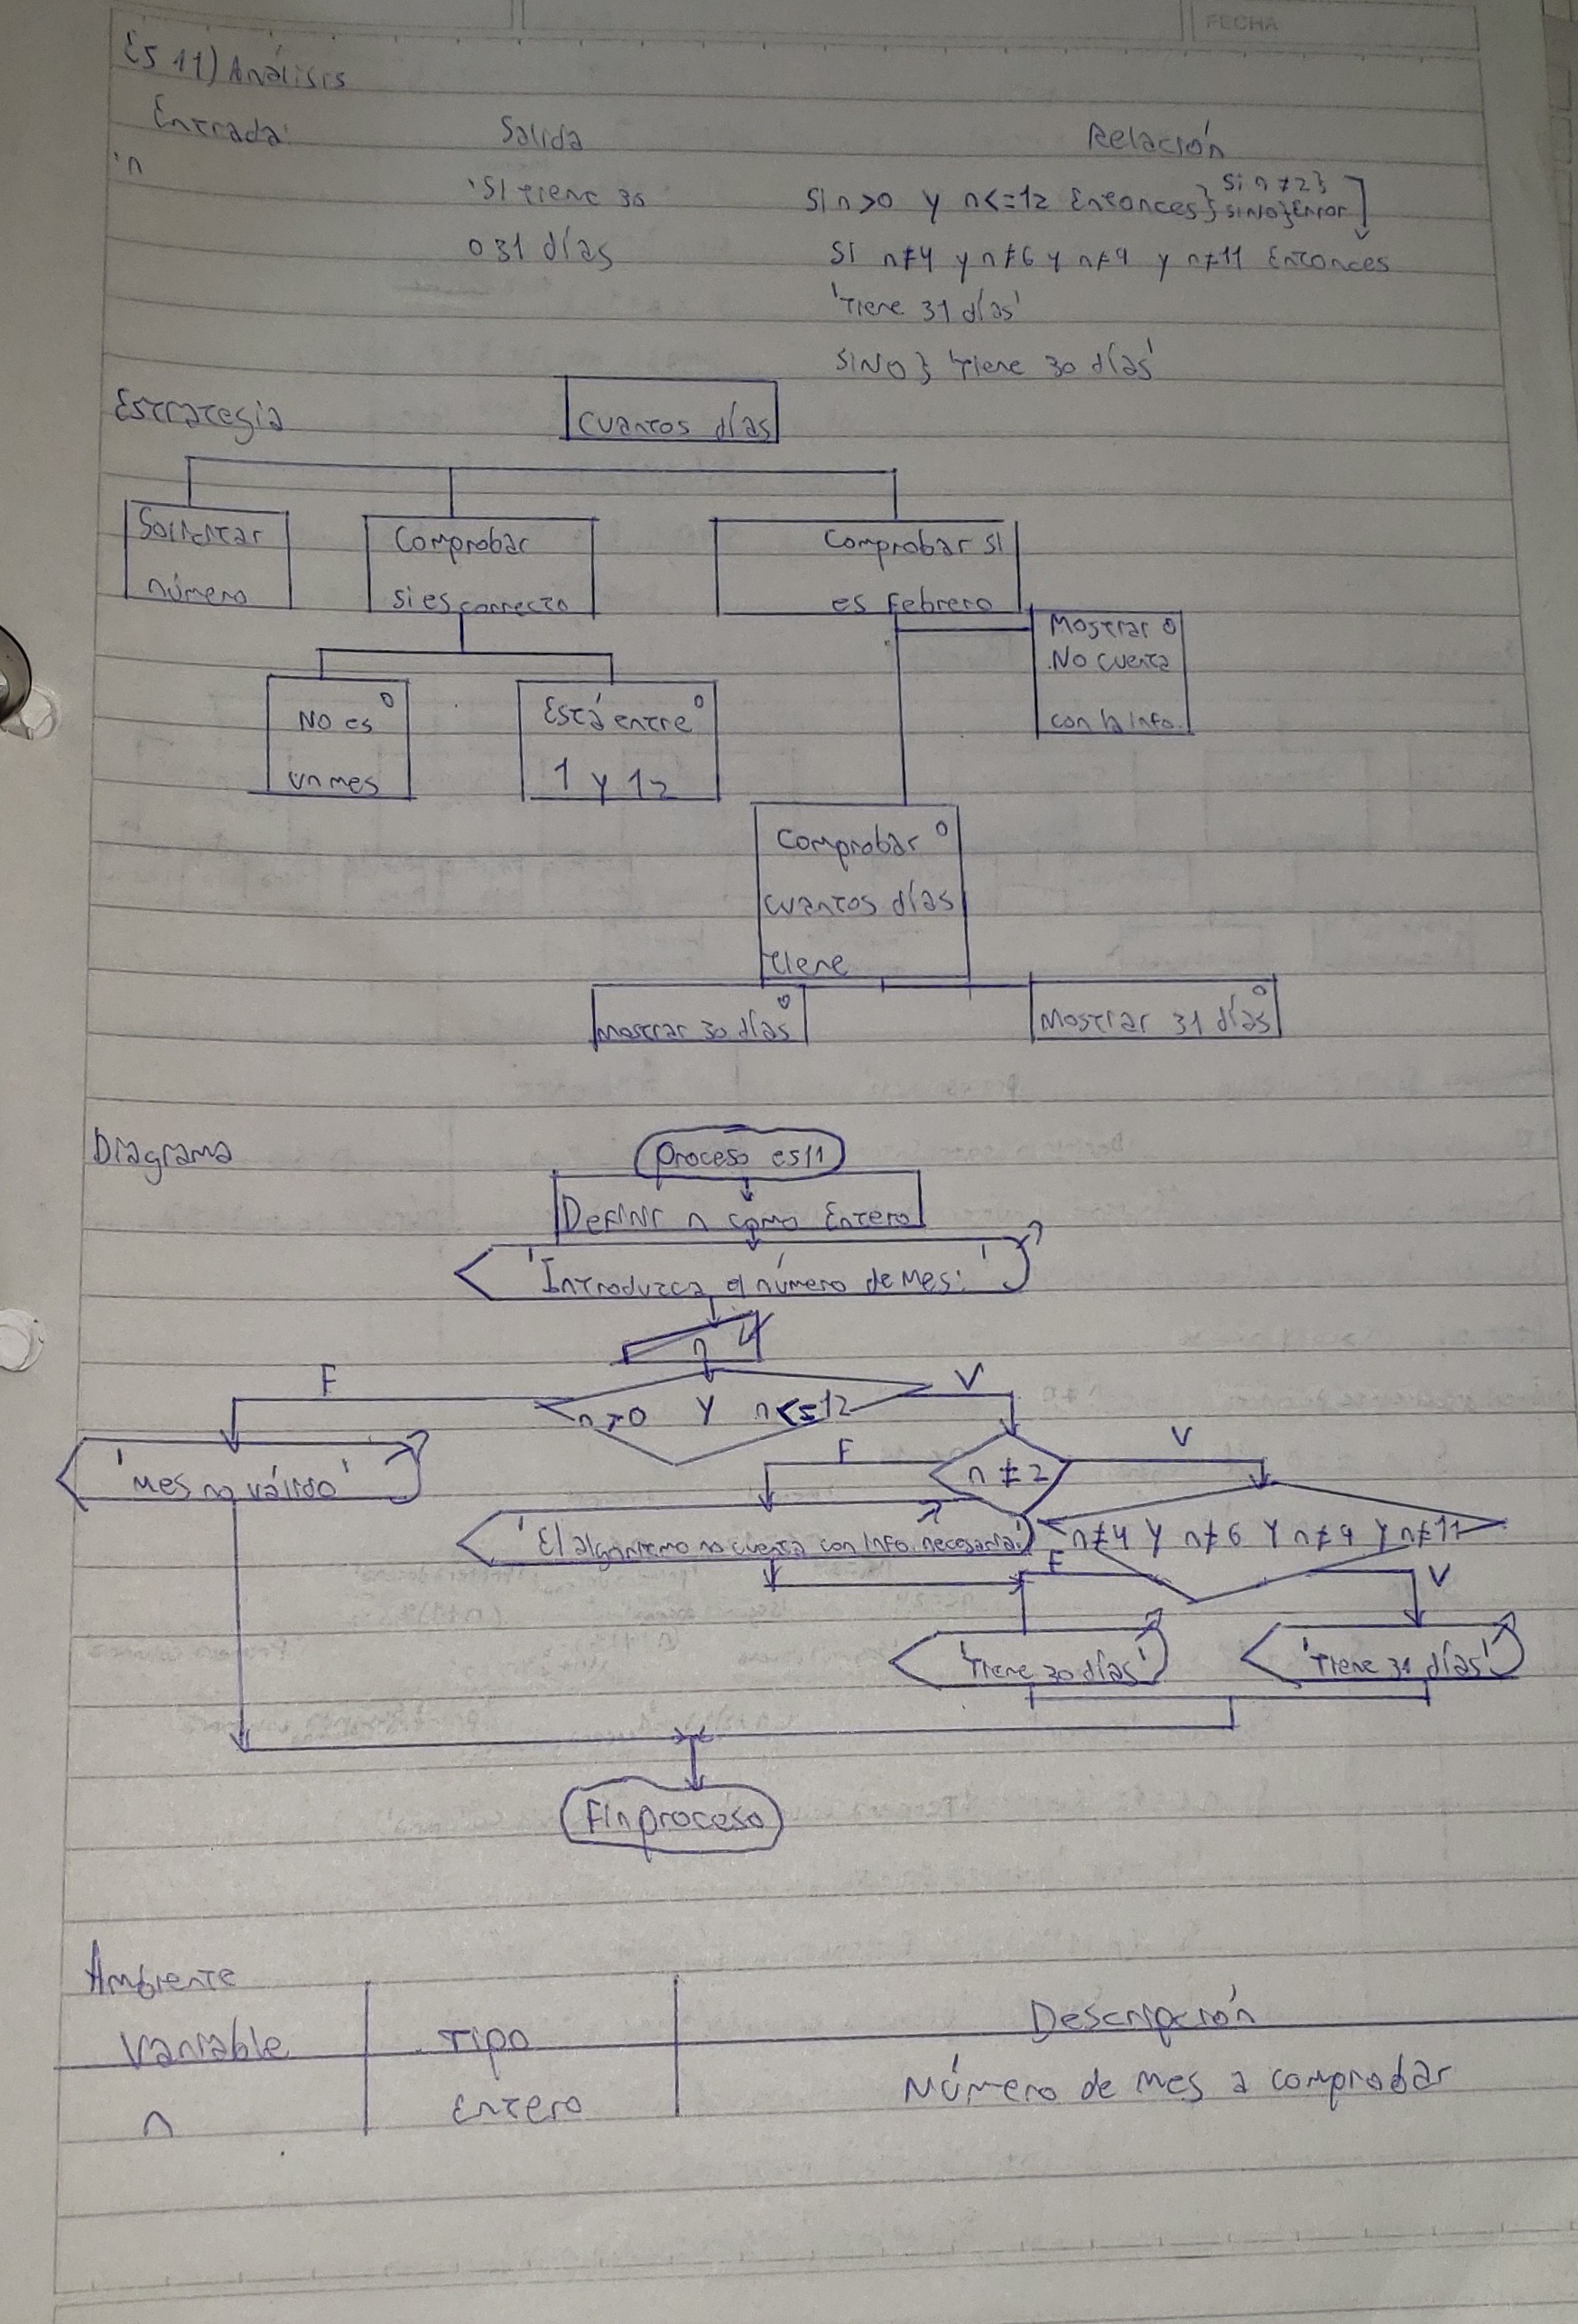 FECHA
Es 11) Análisis
Entrada Salida Relación
'n
'Si tiene 30 Si n>0 y n<=12 Entonces} Si n≠2}
o 31 días SiNo}Error
Si n≠4 y n≠6 y n≠9 y n≠11 Entonces
'Tiene 31 días'
SiNo} 'Tiene 30 días'
Estrategia
Cuantos días
Solicitar
número
Comprobar
si es correcto
Comprobar si
es Febrero
Mostrar o
No cuenta
con la info.
No es o
un mes
Está entre o
1 y 12
Comprobar o
cuantos días
tiene
Mostrar 30 días o
Mostrar 31 días o
Diagrama
Proceso es11
Definir n como Entero
'Introduzca el número de mes:'
n
F n>0 Y n<=12 V
'Mes no válido'
F n≠2 V
'El algoritmo no cuenta con info. necesaria.'
n≠4 Y n≠6 Y n≠9 Y n≠11
F V
'Tiene 30 días' 'Tiene 31 días'
Finproceso
Ambiente
Variable Tipo Descripción
n Entero Número de mes a comprobar